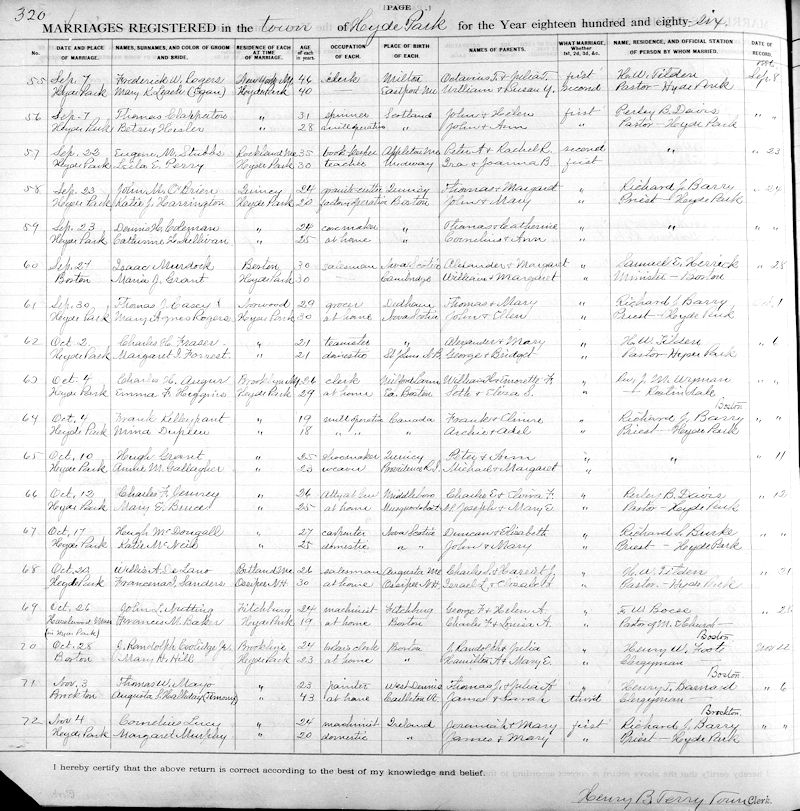 320
PAGE
MARRIAGES REGISTERED in the town of Hyde Park for the Year eighteen hundred and eighty-six
No. DATE AND PLACE OF MARRIAGE. NAMES, SURNAMES, AND COLOR OF GROOM AND BRIDE. RESIDENCE OF EACH AT TIME OF MARRIAGE. AGE of each in years. OCCUPATION OF EACH. PLACE OF BIRTH OF EACH. NAMES OF PARENTS. WHAT MARRIAGE, Whether 1st, 2d, 3d, &c. NAME, RESIDENCE, AND OFFICIAL STATION OF PERSON BY WHOM MARRIED. DATE OF RECORD.
55 Sep. 7 Frederick W. Rogers 46 clerk Milton first H. W. Tilden Sep. 8
Hyde Park Hyde Park 40 Eastport Me William & Susan Y. second Pastor - Hyde Park
56 Sep. 7 Thomas " 31 spinner Scotland John & Helen first Perley B. Davis " "
Hyde Park Betsey " 28 mill operative " John & Ann " Pastor - Hyde Park
57 Sep. 22 Eugene M. Stubbs Rockland Me 35 book keeper Appleton Me Peter A & Rachel R. second " " 23
Hyde Park Leela E. Perry Hyde Park 30 teacher Medway Ira & Joanna B first
58 Sep. 23 John M. O'Brien Quincy 24 granite cutter Quincy Thomas & Margaret " Richard J. Barry " 24
Hyde Park Katie J. Harrington Hyde Park 20 factory operative Boston John & Mary " Priest - Hyde Park
59 Sep. 23 Dennis H. Coleman " 24 " Thomas & Catherine " " " "
Hyde Park Catherine Sullivan " 25 at home " Cornelius & Ann "
60 Sep. 27 Isaac Murdock Boston 30 salesman Nova Scotia Alexander & Margaret " Samuel E. Herrick " 28
Boston Maria J. Grant Hyde Park 30 Cambridge William & Margaret " Minister - Boston
61 Sep. 30 Thomas J. Casey Norwood 29 grocer Dedham Thomas & Mary " Richard J. Barry Oct. 1
Hyde Park Mary Agnes Rogers Hyde Park 30 at home Nova Scotia John & Ellen " Priest - Hyde Park
62 Oct. 2 Charles H. Fraser " 21 teamster " Alexander & Mary " H. W. Tilden " 6
Hyde Park Margaret J. Forrest " 21 domestic St John N.B. George & Bridget " Pastor - Hyde Park
63 Oct. 4 Charles H. Augur Brooklyn NY 26 clerk " Rev. J. M. Wyman " "
Hyde Park Emma F. Higgins Hyde Park 29 at home Ea. Boston " - Roslindale
Boston
64 Oct. 4 Frank " 19 mill operative Canada " Richard J. Barry " "
Hyde Park Mina " 18 " " " Priest - Hyde Park
65 Oct. 10 Hugh Grant " 25 Quincy Peter & Ann " " " 11
Hyde Park Annie M. Gallagher " 23 weaver Providence R.I. Michael & Margaret "
66 Oct. 12 Charles F. Jenney " 26 Atty at law Middleboro Charles E & Elvira F. " Perley B. Davis " 12
Hyde Park Mary E. Bruce " 25 at home Joseph & Mary E " Pastor - Hyde Park
67 Oct. 17 Hugh McDougall " 27 carpenter Nova Scotia Duncan & Elizabeth " Richard J. Burke " "
Hyde Park Katie McNeil " 25 domestic " " John & Mary " Priest - Hyde Park
68 Oct. 20 Willis A. DeLano Portland Me 26 salesman Augusta Me " H. W. Tilden " 21
Hyde Park Francena J. Sanders Ossipee N.H. 30 at home Ossipee N.H. " Pastor - Hyde Park
69 Oct. 26 John L. Nutting Fitchburg 24 machinist Fitchburg George F & Helen A. " "
Frances M. Baker Hyde Park 19 at home Boston Charles F & Louisa A. " Pastor of M. E. Church -
(in Hyde Park) Boston
70 Oct. 28 J. Randolph Coolidge Jr. Brookline 24 law clerk Boston J. Randolph & Julia " Henry W. Foote Nov.
Boston Mary H. Hill Hyde Park 23 at home " Hamilton A & Mary E. " Clergyman -
Boston
71 Nov. 3 Thomas W. Mayo " 23 painter West Dennis " Henry J. Barnard " 6
Brockton " 43 at home Castleton Vt. James & Sarah third Clergyman -
Brockton
72 Nov 4 Cornelius Lucy " 24 machinist Ireland Jeremiah & Mary first Richard J. Barry " "
Hyde Park Margaret Murphy " 20 domestic " James & Mary " Priest - Hyde Park
I hereby certify that the above return is correct according to the best of my knowledge and belief.
Henry B. Terry Town Clerk.